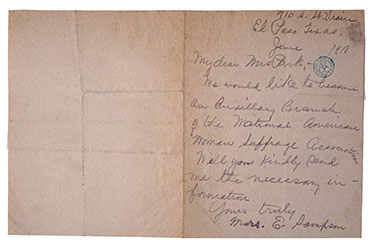 710 S. St. Vrain
El Paso Texas.
June 1918
My dear Mrs Park,-
We would like to become
an Auxillary Branch
of the National American
Woman Suffrage Association
Will you kindly send
me the necessary in-
formation
Yours truly
Mrs. E. Sampson